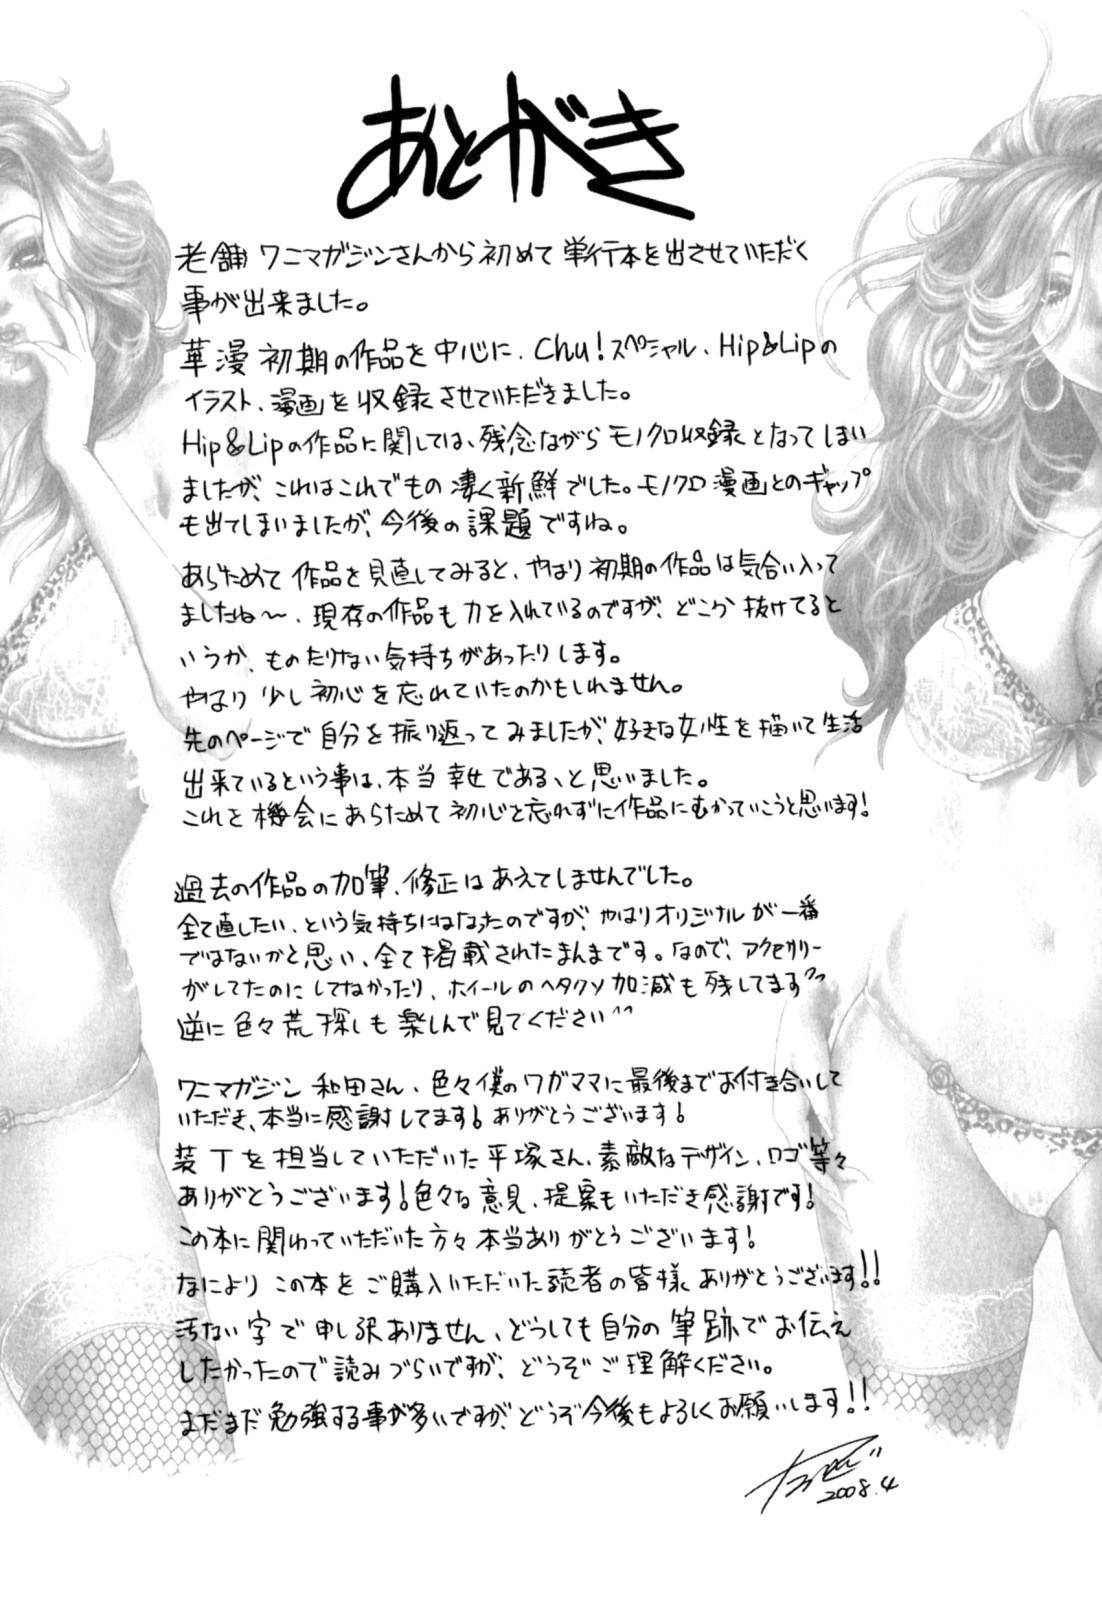 あとがき
老舗ワニマガジンさんから初めて単行本を出させていただく
事が出来ました。
華漫初期の作品を中心に、Chu!スペシャル、Hip&Lipの
イラスト、漫画を収録させていただきました。
Hip&Lipの作品に関しては、残念ながらモノクロ収録となってしまい
ましたが、これはこれでもの凄く新鮮でした。モノクロ漫画とのギャップ
も出てしまいましたが、今後の課題ですね。
あらためて作品を見直してみると、やはり初期の作品は気合い入って
ましたね〜、現存の作品も力を入れているのですが、どこか抜けてると
いうか、ものたりない気持ちがあったりします。
やはり少し初心を忘れていたのかもしれません。
先のページで自分を振り返ってみましたが、好きな女性を描いて生活
出来ているという事は、本当幸せである、と思いました。
これを機会にあらためて初心を忘れずに作品にむかっていこうと思います!
過去の作品の加筆、修正はあえてしませんでした。
全て直したい、という気持ちにはなったのですが、やはりオリジナルが一番
ではないかと思い、全て掲載されたまんまです。なので、アクセサリー
がしてたのにしてなかったり、ホイールのヘタクソ加減も残してます^^
逆に色々荒探しも楽しんで見てください^^
ワニマガジン 和田さん、色々僕のワガママに最後までお付き合いして
いただき、本当に感謝してます!ありがとうございます!
装丁を担当していただいた平塚さん、素敵なデザイン、ロゴ等々
ありがとうございます!色々な意見、提案もいただき感謝です!
この本に関わっていただいた方々本当ありがとうございます!
なによりこの本をご購入いただいた読者の皆様ありがとうございます!!
汚ない字で申し訳ありません、どうしても自分の筆跡でお伝え
したかったので読みづらいですが、どうぞご理解ください。
まだまだ勉強する事が多いですが、どうぞ今後もよろしくお願いします!!
2008.4